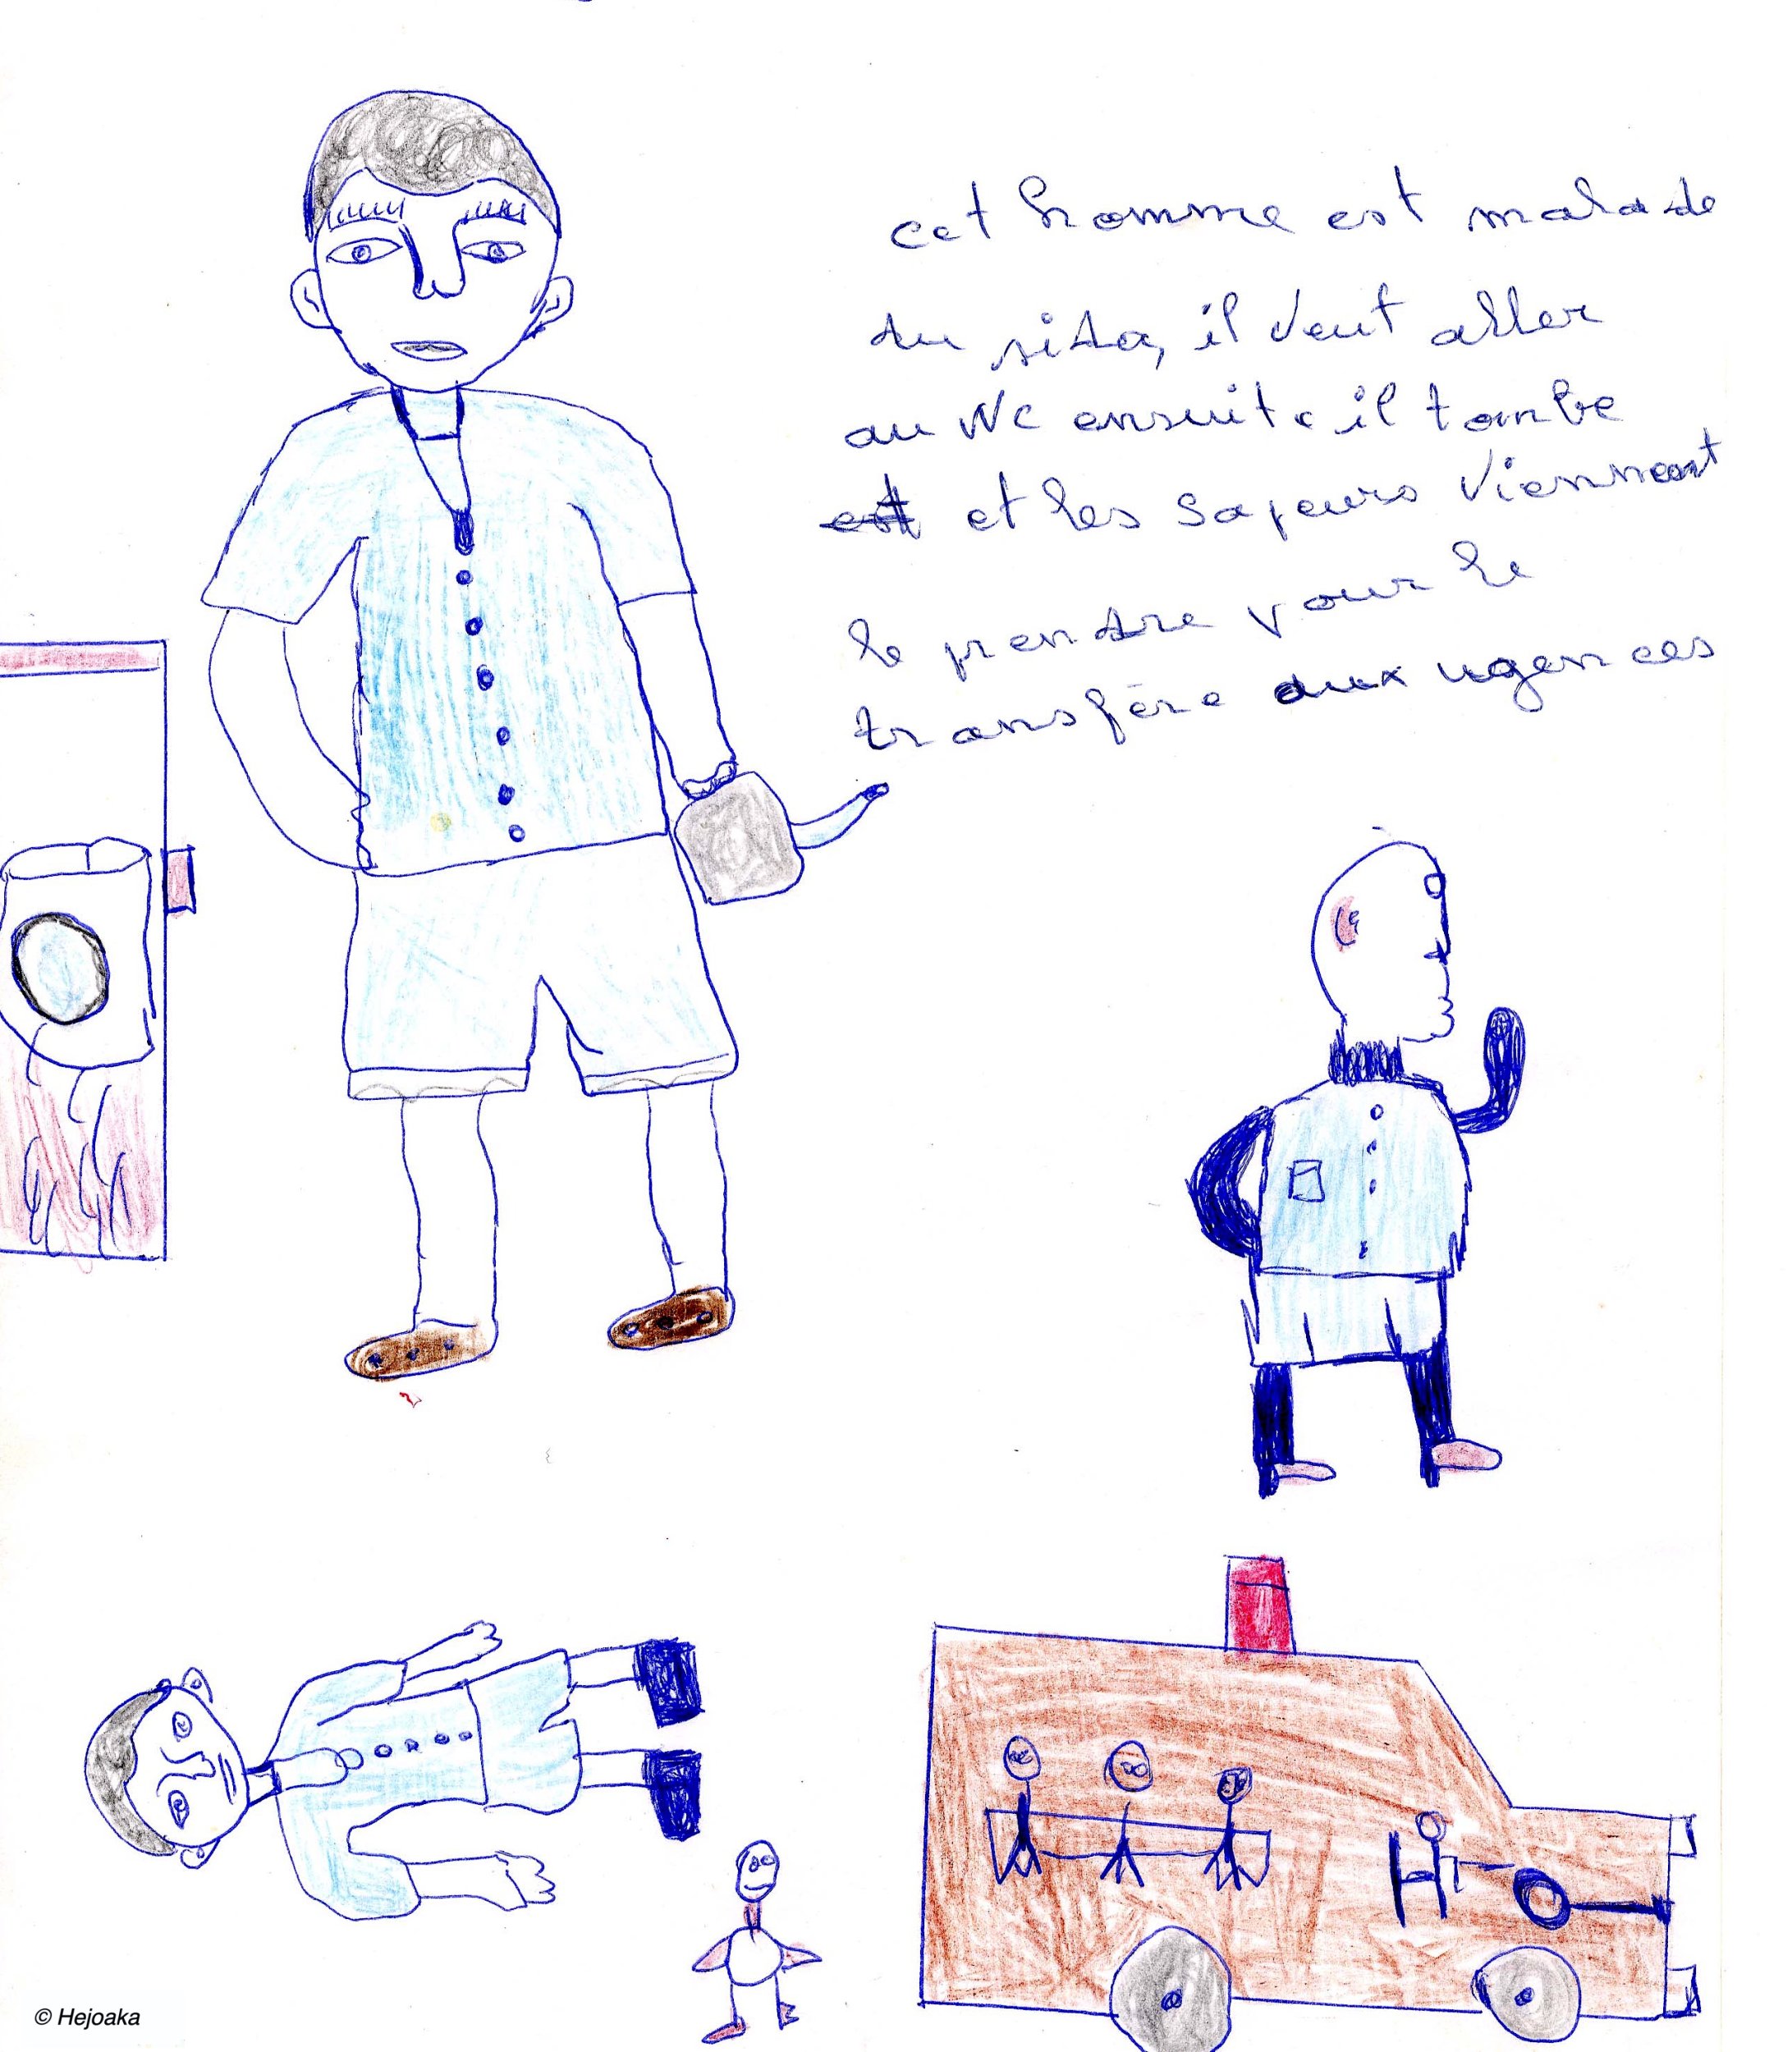 cet homme est malade
du sida, il veut aller
au Wc ensuite il tombe
est et les sapeurs viennent
le prendre pour le
transfère aux ugences
© Hejoaka